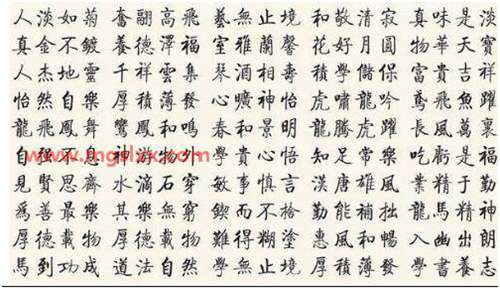 人淡如菊 奮翮高飛 藝無止境 和敬清寂 真味是淡
真金不鍍 養德澤福 室雅蘭馨 花好月圓 物華天寶
人杰地靈 千祥雲集 琴酒相壽 積學儲保 富貴吉祥
怡然自樂 厚積薄發 心曠神怡 虎嘯龍吟 鳶飛魚躍
龍飛鳳舞 鸞鳳和鳴 春和景明 龍騰虎躍 長風萬裏
自 神游物外 學貴心悟 知足常樂 吃虧是福
見賢思齊 水滴石穿 敏事慎言 漢唐雄風 業精于勤
爲善最樂 其樂無窮 鍥而不捨 勤能補拙 龍馬精神
厚德載物 厚德載物 難得糊塗 惠風和暢 入幽出朗
馬到功成 道法自然 學無止境 厚積薄發 學書養志